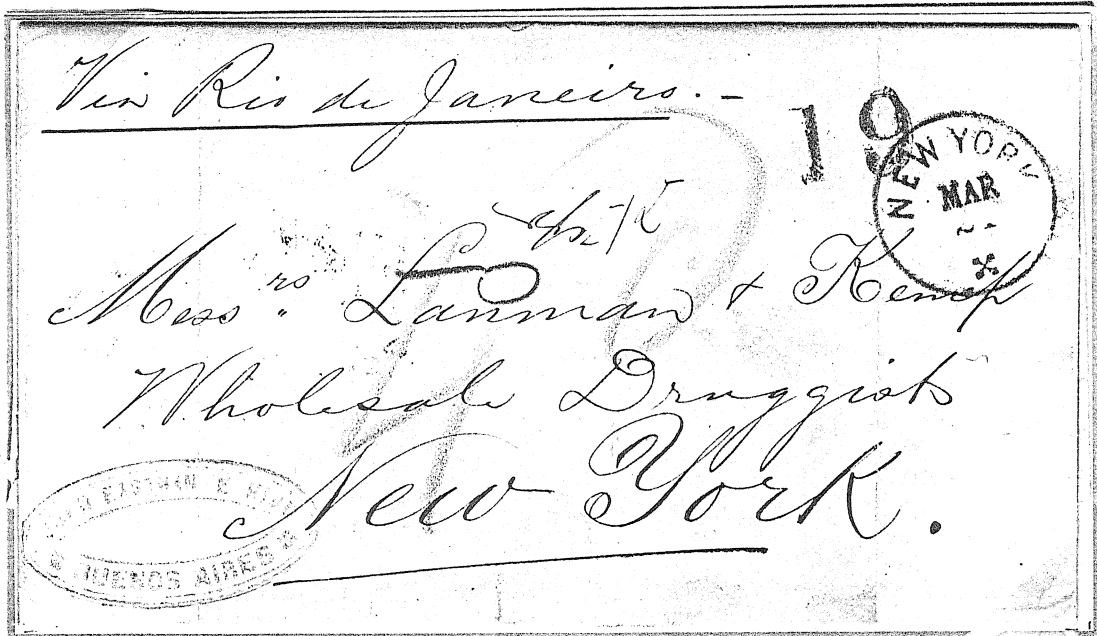 Via Rio de Janeiro. -
19
NEW YORK
MAR
Messrs. Lanman & Kemp
Wholesale Druggists
New York.
BUENOS AIRES